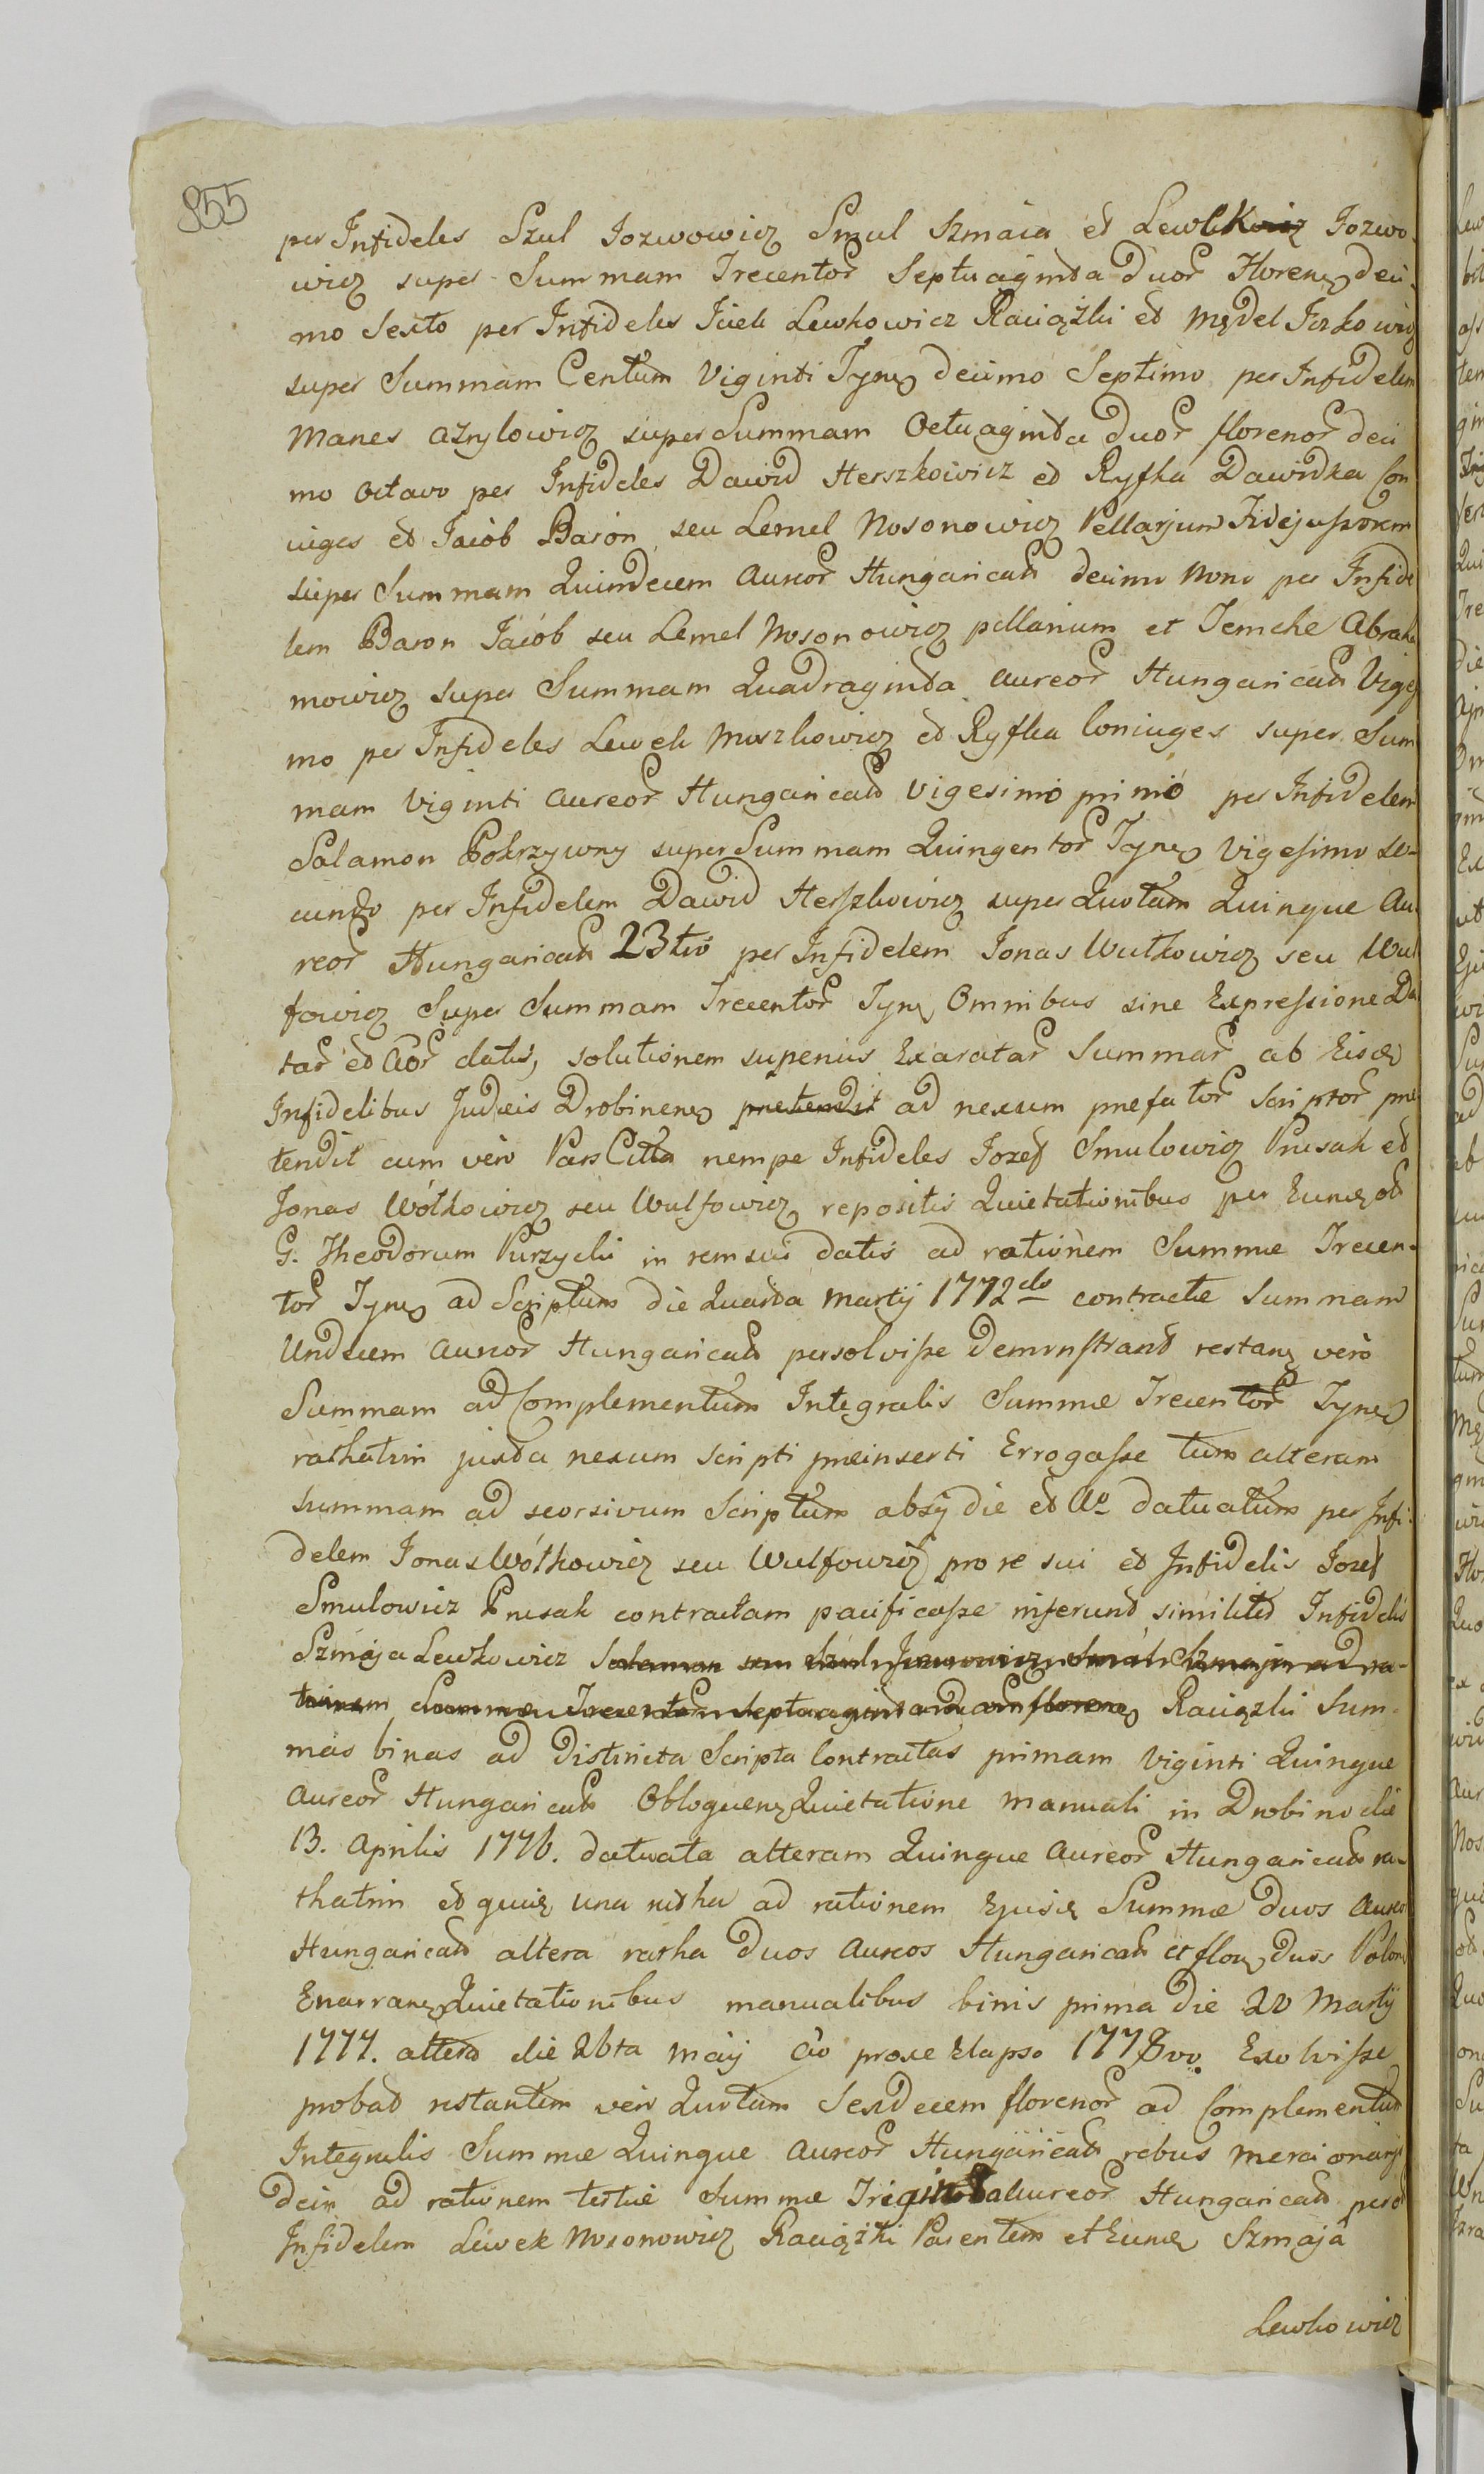 855
per Infideles Szul Jozwowicz Smul Szmaia et Lewek Jozwo-
wicz super Summam Trecentor Septuaginta duor Floren deci-
mo Sexto per Infideles Icek Lewkowicz Raciązki et Mędel Joskowicz
super Summam Centum Viginti Tynf decimo Septimo per Infidelem
Manes Azrylowicz super Summam Octuaginta duor florenor deci
mo Octavo per Infideles Dawid Herszkowicz et Ryfka Dawidka Con
iuges et Jacob Baron seu Lemel Nosonowicz Pellarium Fidejussorem
super Summam Quindecem Aureor Hungarical decimo Nono per Infide
lem Baron Jacob seu Lemel Nosonowicz pellarium et Jemche Abraha
mowicz super Summam Quadraginta aureor Hungarical Vigesi
mo per Infideles Lewek Moszkowicz et Ryfka Coniuges super Sum
mam Viginti aureor Hungarical Vigesimo primo per Infidelem
Salamon Pokrzywny super Summam Quingentor Tynf Vigesimo se-
cundo per Infidelem Dawid Herszkowicz super Quotam Quinque Au
reor Hungarical 23tio per Infidelem Jonas Wulkowicz seu Wul
fowicz Super Summam Trecentor Tynf Omnibus sine Expressione Da
tar et Aor datis, solutionem superius Exaratar Summar ab Eisd
Infidelibus Judæis Drobinens pretendit ad nexum prefator Scriptor pre
tendit cum vero Pars Citta nempe Infideles Jozef Smulowicz Prusak et
Jonas Wółkowicz seu Wulfowicz repositis Quietationibus per Eund ol
G. Theodorum Purzycki in rem sui datis ad rationem Summæ Trecen-
tor Tynf ad Scriptum die Quarta Martij 1772do contractæ Summam
Undecem Aureor Hungarical persolvisse demonstrant restan vero
Summam ad Complementum Integralis Summæ Trecentor Tynf
rathatim juxta nexum scripti preinserti Errogasse tum alteram
summam ad seorsivum Scriptum absq die et Ao datuatum per Infi-
delem Jonas Wółkowicz seu Wulfowicz pro re sui et Infidelis Jozef
Smulowicz Prusak contractam pacificasse inferunt similiter Infidelis
Szmaja Lewkowicz Salamon seu Szul Jozwowicz Smul Szmaja ad ra-
tionem Summæ Trecentor Septuaginta duor floren Raciązki Sum-
mas binas ad Distincta Scripta Contractas primam Viginti Quinque
Aureor Hungarical Obloquen Quietatione manuali in Drobino die
13. Aprilis 1776. datuata alteram Quinque Aureor Hungarical ra-
thatim et quid una ratha ad rationem Ejusd Summæ duos Aureos
Hungarical altera ratha duos Aureos Hungarical et flor duos Polon
Enarran Quietationibus manualibus binis prima die 20 Martij
1777. altera die 26ta Maij Ao proxe Elapso 1778vo. Exolvisse
probat restantem vero Quotam Sexdecem florenor ad Complementum
Integralis Summæ Quinque Aureor Hungarical rebus mercionarijs
dein ad rationem tertiæ Summæ Triginta Aureor Hungarical per ol
Infidelem Lewek Nosonowicz Raciązki Parentem et Eund Szmaja
Lewkowicz